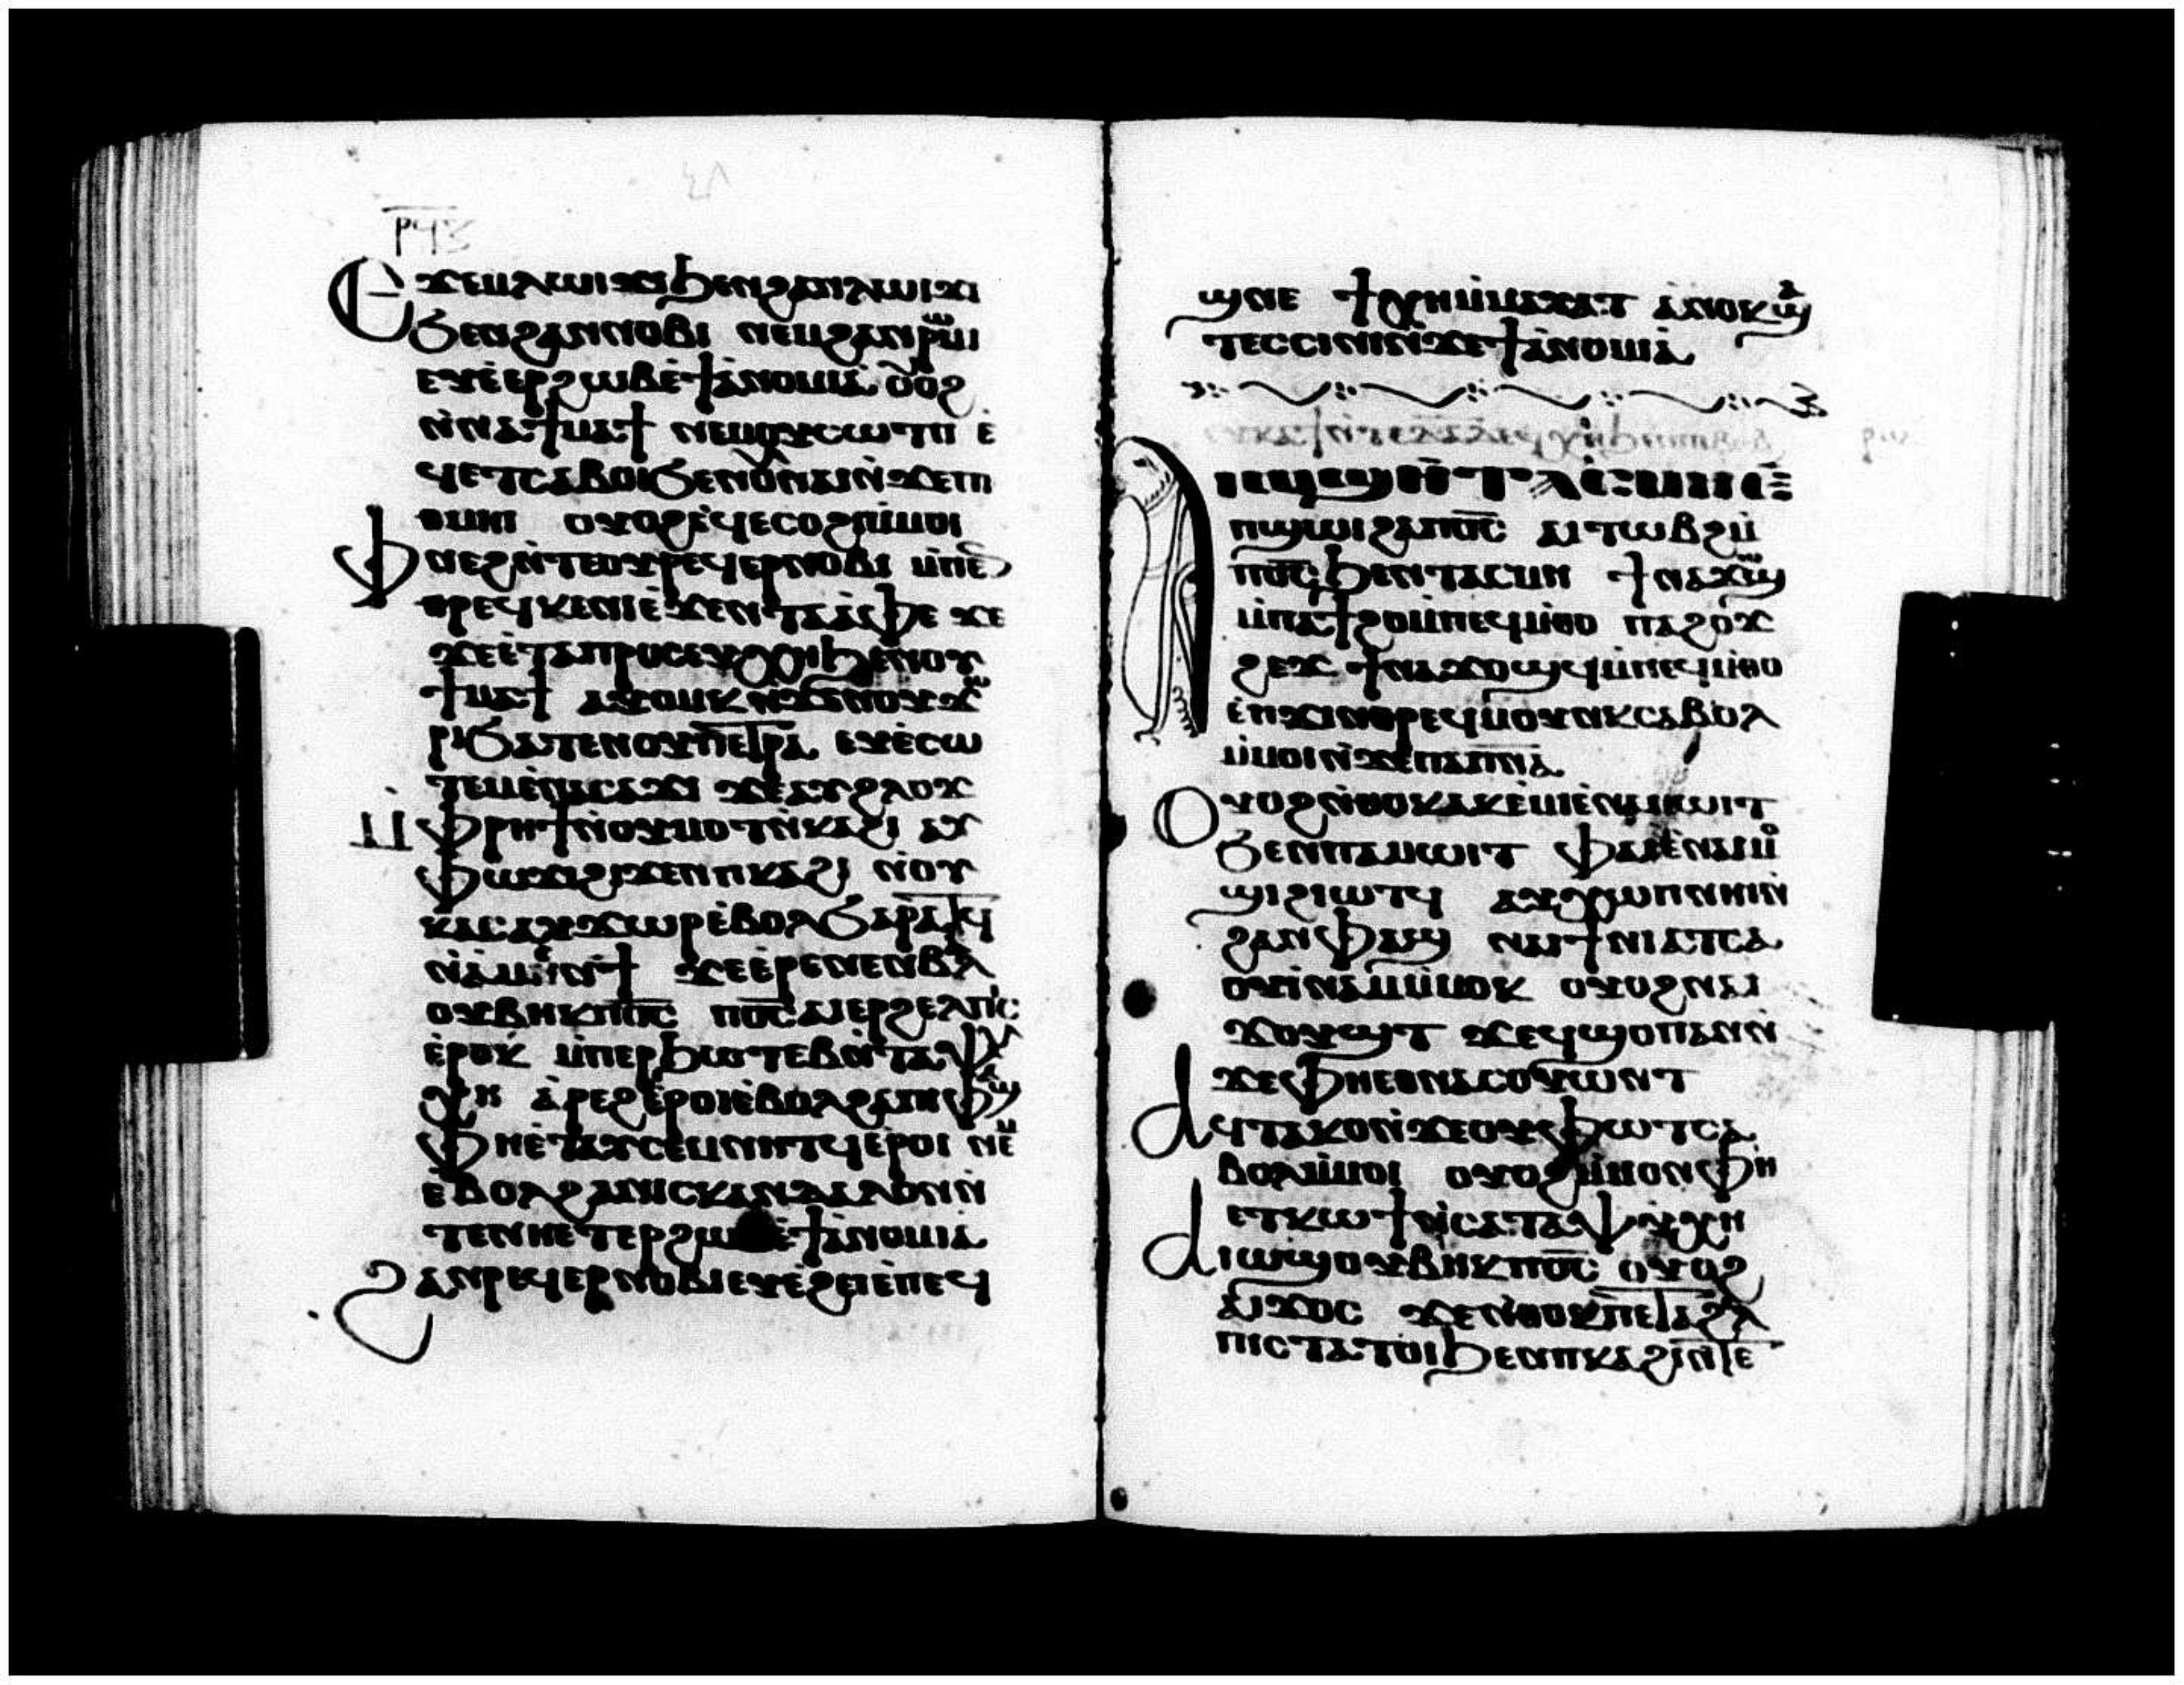 ⲣϥⲍ
Ⲉϫⲉⲙⲗⲱⲓϫⲓϧⲉⲛϩⲁⲛⲗⲱⲓϫⲓ
ϧⲉⲛϩⲁⲛⲛⲟⲃⲓ ⲛⲉⲙϩⲁⲛⲣⲱⲙⲓ
ⲉⲩⲉⲣϩⲱⲃⲉ̀ϯⲁ̀ⲛⲟⲙⲓⲁ ⲟⲩⲟϩ
ⲛ̀ⲛⲁϯⲙⲁϯ ⲛⲉⲙⲟⲩⲥⲱⲧⲡ ⲉ̀
ϥⲉⲧⲥⲁⲃⲟⲓϧⲉⲛⲟⲩⲛⲁⲓⲛ̀ϫⲉⲡ
ⲑⲙⲏⲓ ⲟⲩⲟϩⲉ̀ϥⲉⲥⲟϩⲓⲙ̀ⲙⲟⲓ
Ⲫⲛⲉϩⲛ̀ⲧⲉⲟⲩⲣⲉϥⲉⲣⲛⲟⲃⲓ ⲙ̀ⲡⲉⲛ
ⲑⲣⲉϥⲕⲉⲛⲓⲉ̀ϫⲉⲛⲧⲁⲁ̀ⲫⲉ ϫⲉ
ϫⲉⲉ̀ⲧⲁⲡⲣⲟⲥⲉⲩⲭⲏϧⲉⲛⲟⲩ
ϯⲙⲁϯ ⲁⲩⲟⲙⲕ ⲛ̀ϫⲉⲛⲟⲩϫⲱ
ⲣⲓϧⲁⲧⲉⲛⲟⲩⲡⲉⲧⲣⲁ ⲉⲩⲉ̀ⲥⲱ
ⲧⲉⲙⲉ̀ⲛⲁⲥⲁϫⲓ ϫⲉⲁⲩϩⲗⲟϫ
Ⲙ̀ⲫⲣⲏϯⲛ̀ⲟⲩⲙⲟⲧⲛ̀ⲕⲁϩⲓ ⲁⲩ
ⲫⲱϫⲓϩⲓϫⲉⲛⲡⲕⲁϩⲓ ⲛ̀ⲟⲩ
ⲕⲁⲥⲁⲩϫⲱⲣⲉ̀ⲃⲟⲗϧⲁⲣⲁⲧϥ
ⲛ̀ⲁ̀ⲙⲉⲛϯ ϫⲉⲉ̀ⲣⲉⲛⲉⲛⲃⲁⲗ
ⲟⲩⲃⲏⲕⲡⲟ̅ⲥ̅ ⲡⲟ̅ⲥ̅ⲁⲓⲉⲣϩⲉⲗⲡⲓⲥ
ⲉ̀ⲣⲟⲕ ⲙ̀ⲡⲉⲣϧⲱⲧⲉⲃⲛ̀ⲧⲁⲯⲩ
ⲭⲏ ⲁ̀ⲣⲉϩⲉ̀ⲣⲟⲓⲉ̀ⲃⲟⲗϩⲁⲡⲓⲫⲁϣ
ⲫⲏⲉ̀ⲧⲁⲩⲥⲉⲙⲛⲏⲧϥⲉ̀ⲣⲟⲓ ⲛⲉⲙ
ⲉ̀ⲃⲟⲗϩⲁⲛⲓⲥⲕⲁⲛⲇⲁⲗⲟⲛⲛ̀
ⲧⲉⲛⲏⲉⲧⲉⲣϩⲱⲃⲉ̀ϯⲁ̀ⲛⲟⲙⲓⲁ
ϩⲁⲛⲣⲉϥⲉⲣⲛⲟⲃⲓⲉⲩⲉ̀ϩⲉⲓⲉ̀ⲡⲉϥ
ϣⲛⲉ ϯⲭⲏⲙ̀ⲙⲁⲩⲁⲧ ⲁ̀ⲛⲟⲕϣⲁ
ⲧⲉⲥⲥⲓⲛⲓⲛ̀ϫⲉϯⲁ̀ⲛⲟⲙⲓⲁ
ⲡϣⲱⲓϩⲁⲡⲟ̅ⲥ̅ ⲁⲓⲧⲱⲃϩⲙ̀
ⲡⲟ̅ⲥ̅ϧⲉⲛⲧⲁⲥⲙⲏ ϯⲛⲁϫⲱϣ
ⲙ̀ⲡⲁϯϩⲟⲙ̀ⲡⲉϥⲙ̀ⲑⲟ ⲡⲁϩⲟϫ
ϩⲉϫ ϯⲛⲁϫⲟϣϥⲙ̀ⲡⲉϥⲙ̀ⲑⲟ
ⲉ̀ⲡϫⲓⲛⲑⲣⲉϥⲙⲟⲩⲛⲕⲥⲁⲃⲟⲗ
ⲙ̀ⲙⲟⲓⲛ̀ϫⲉⲡⲁⲡⲛ̅ⲁ̅
Ⲟⲩⲟϩⲛ̀ⲑⲟⲕⲁⲕⲉ̀ⲙⲓⲉ̀ⲛⲁⲙⲱⲓⲧ
ϧⲉⲛⲡⲁⲙⲱⲓⲧ ⲫⲁⲓⲉ̀ⲛⲁⲓⲙⲟ
ϣⲓϩⲓⲱⲧϥ ⲁⲩⲭⲱⲡⲛⲏⲓⲛ̀
ϩⲁⲛⲫⲁϣ ⲛⲁⲓϯⲛⲓⲁⲧⲥⲁ
ⲟⲩⲓ̀ⲛⲁⲙⲙ̀ⲙⲟⲕ ⲟⲩⲟϩⲛⲁⲓ
ϫⲟⲩϣⲧ ϫⲉϥϣⲟⲡⲁⲛⲛ̀
ϫⲉⲫⲏⲉⲑⲛⲁⲥⲟⲩⲱⲛⲧ
Ⲁϥⲧⲁⲕⲟⲛ̀ϫⲉⲟⲩⲫⲱⲧⲥⲁ
ⲃⲟⲗⲙ̀ⲙⲟⲓ ⲟⲩⲟϩⲙ̀ⲙⲟⲛⲫⲏ
ⲉⲧⲕⲱϯⲛ̀ⲥⲁⲧⲁⲯⲩⲭⲏ
Ⲁⲓⲱϣⲟⲩⲃⲏⲕⲡⲟ̅ⲥ̅ ⲟⲩⲟϩ
ⲁⲓϫⲟⲥ ϫⲉⲛ̀ⲑⲟⲕⲡⲉⲧⲁϩⲉⲗ
ⲡⲓⲥⲧⲁⲧⲟⲓϧⲉⲛⲡⲕⲁϩⲓⲛ̀ⲧⲉ